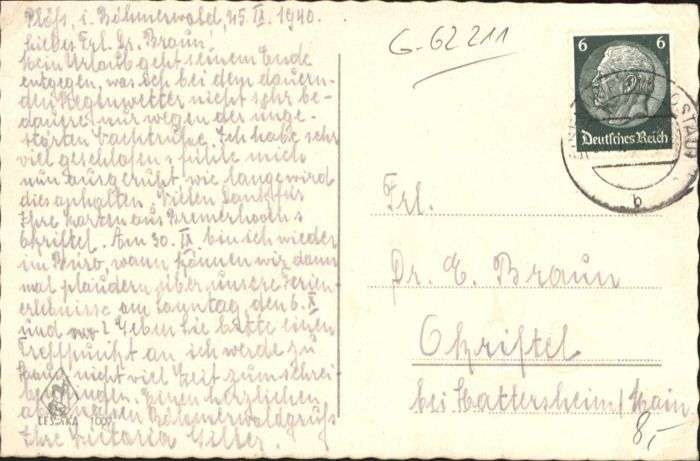 Plöß, i. Böhmerwald, 25. IX. 1940.
Liebes Frl. Dr. Braun!
Mein Urlaub geht seinem Ende
entgegen, was ich bei dem dauern-
den Regenwetter nicht sehr be-
dauere nur wegen der unge-
störten Nachtruhe. Ich habe sehr
viel geschlafen u fühle mich
nun ausgeruht, wie lange wird
dies anhalten. Vielen Dank für
Ihre Karten aus Bremerhaven u
Okriftel. Am 30. IX bin ich wieder
im Büro, wann können wir dann
mal plaudern über unsere Ferien-
erlebnisse am Sonntag, den 6. X
und wo? Geben Sie bitte einen
Treffpunkt an ich werde zu
Haus nicht viel Zeit zum schrei
Einen herzlichen
Böhmerwaldgruß
Ihre Viktoria
LESWKA 1007
G-62211
6 6
Deutsches Reich
b
Frl.
Dr. E. Braun
Okriftel
bei Hattersheim/Main
8,-